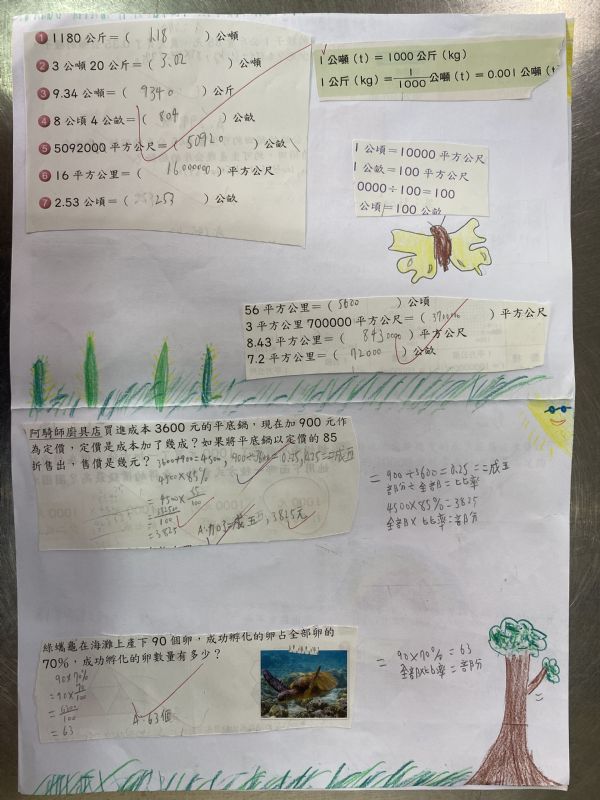 1 1180 公斤＝( 1.18 ) 公噸
2 3 公噸 20 公斤＝( 3.02 ) 公噸
3 9.34 公噸＝( 9340 ) 公斤
4 8 公頃 4 公畝＝( 804 ) 公畝
5 5092000 平方公尺＝( 50920 ) 公畝
6 16 平方公里＝( 16000000 ) 平方公尺
7 2.53 公頃＝( 253 ) 公畝
1 公噸 (t)＝1000 公斤 (kg)
1 公斤 (kg)＝1/1000 公噸 (t)＝0.001 公噸 (t
1 公頃＝10000 平方公尺
1 公畝＝100 平方公尺
0000÷100＝100
公頃＝100 公畝
56 平方公里＝( 5600 ) 公頃
3 平方公里 700000 平方公尺＝( 3700000 ) 平方公尺
8.43 平方公里＝( 8430000 ) 平方公尺
7.2 平方公里＝( 72000 ) 公畝
阿騎師廚具店買進成本 3600 元的平底鍋，現在加 900 元作
為定價，定價是成本加了幾成？如果將平底鍋以定價的 85
折售出，售價是幾元？ 3600+900=4500, 900÷3600=0.25, 0.25=二成五
4500×85%
=4500×85/100
=3825
A:加二成五, 3825元
=900÷3600=0.25=二成五
部分÷全部=比率
4500×85%=3825
全部×比率=部分
綠蠵龜在海灘上產下 90 個卵，成功孵化的卵占全部卵的
70%，成功孵化的卵數量有多少？
90×70%
=90×70/100
=6300/100
=63
A:63個
=90×70%=63
全部×比率=部分